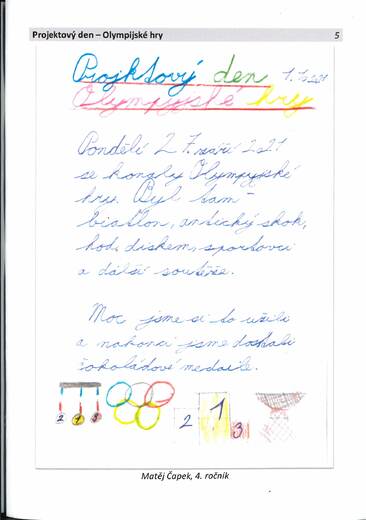 Projektový den – Olympijské hry 5
Projktový den
Olympyjské hry
Pondělí 27. září 2021
se konaly Olympyjské
hry. Byl tam
biatlon, antický skok,
hod diskem, sportovci
a další soutěže.
Moc jsme si to užili
a nakonci jsme dostali
čokoládové medaile.
2 1 3
2 1 3
Matěj Čapek, 4. ročník